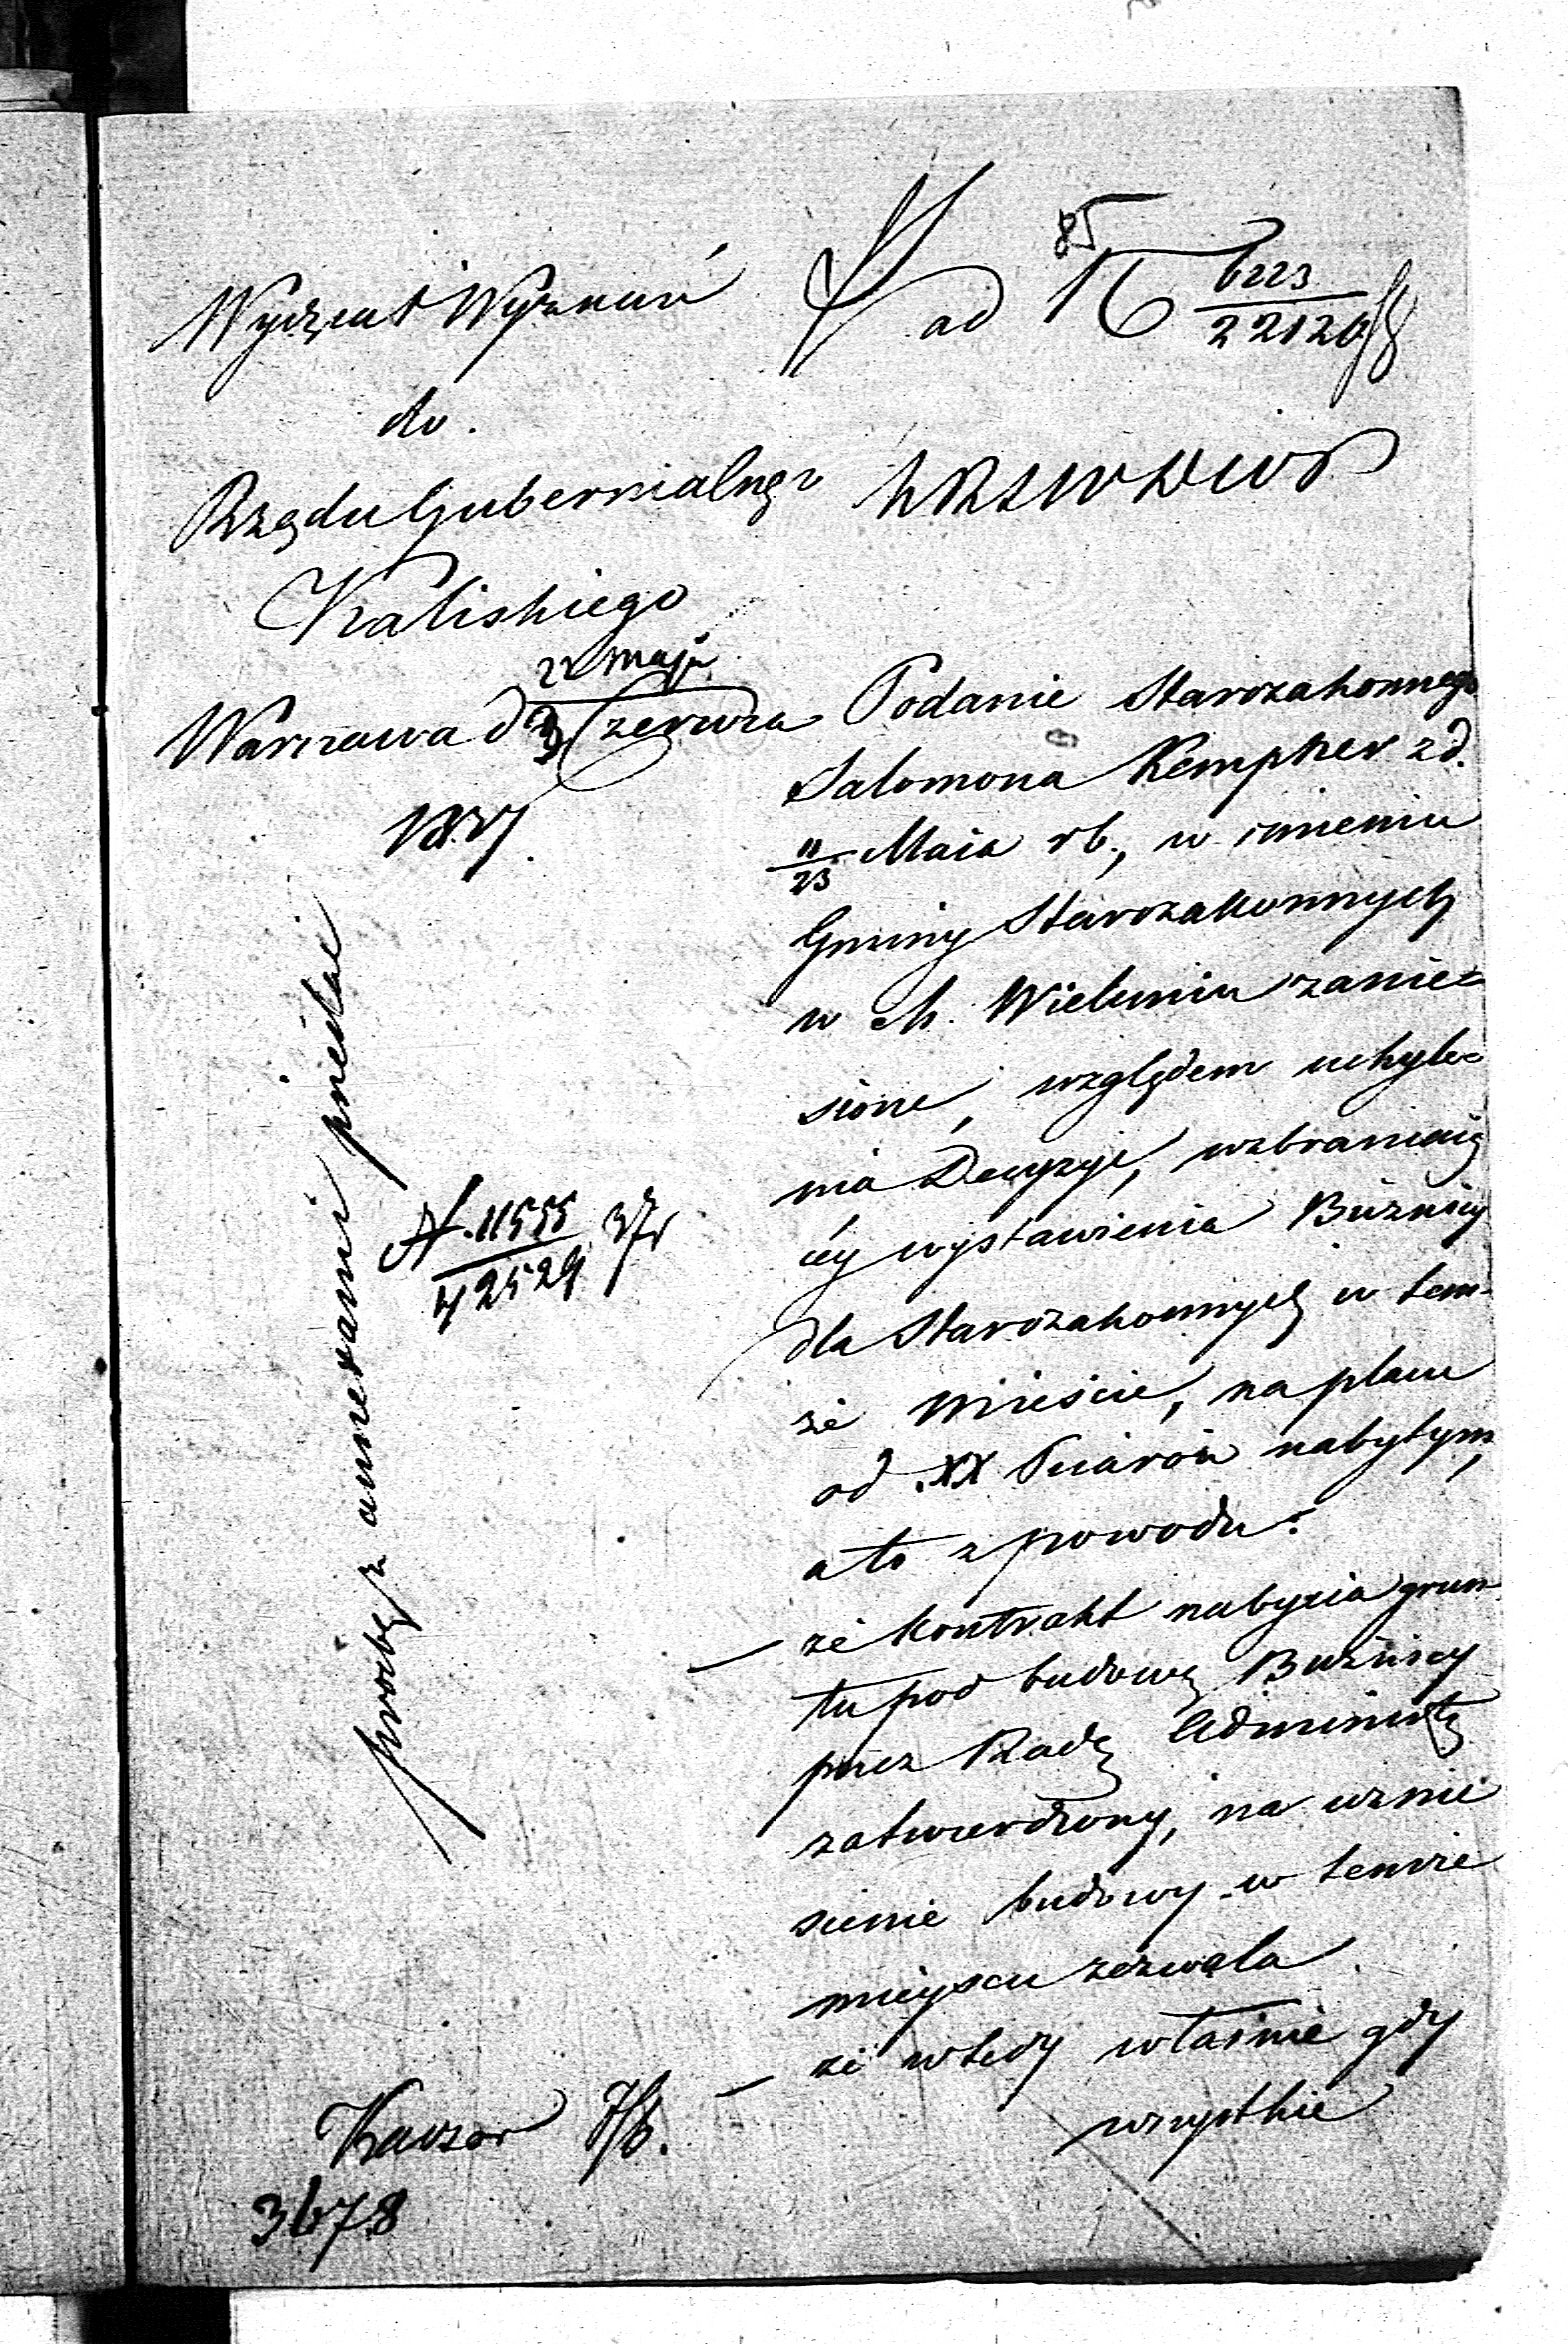 85
Wydział Wyznań
ad N 6223
22120
do.
Rządu Gubernialnego
Kaliskiego
22 maja
Warszawa d 3 Czerwca
1837.
Podanie Starozakonnego
Salomona Kempner z d.
11/23 Maia rb., w imieniu
Gminy Starozakonnych
w M. Wieluniu zanie=
sione, względem uchyle=
nia Decyzyi, wzbraniaią
céy wystawienia Bużnicy
dla Starozakonnych w tem-
że Mieście, na placu
od XX Piiarów nabytym,
a to z powodu:
— że kontrakt nabycia grun
tu pod budowę Bużnicy
przez Radę Administrą
zatwierdzony, na wznie
sienie budowy w temże
mieyscu zezwala
— że wtedy właśnie gdy
wszystkie
prośbę z annexami przesłać
N. 11555 37r
42529
Kaczor 7/6.
3678